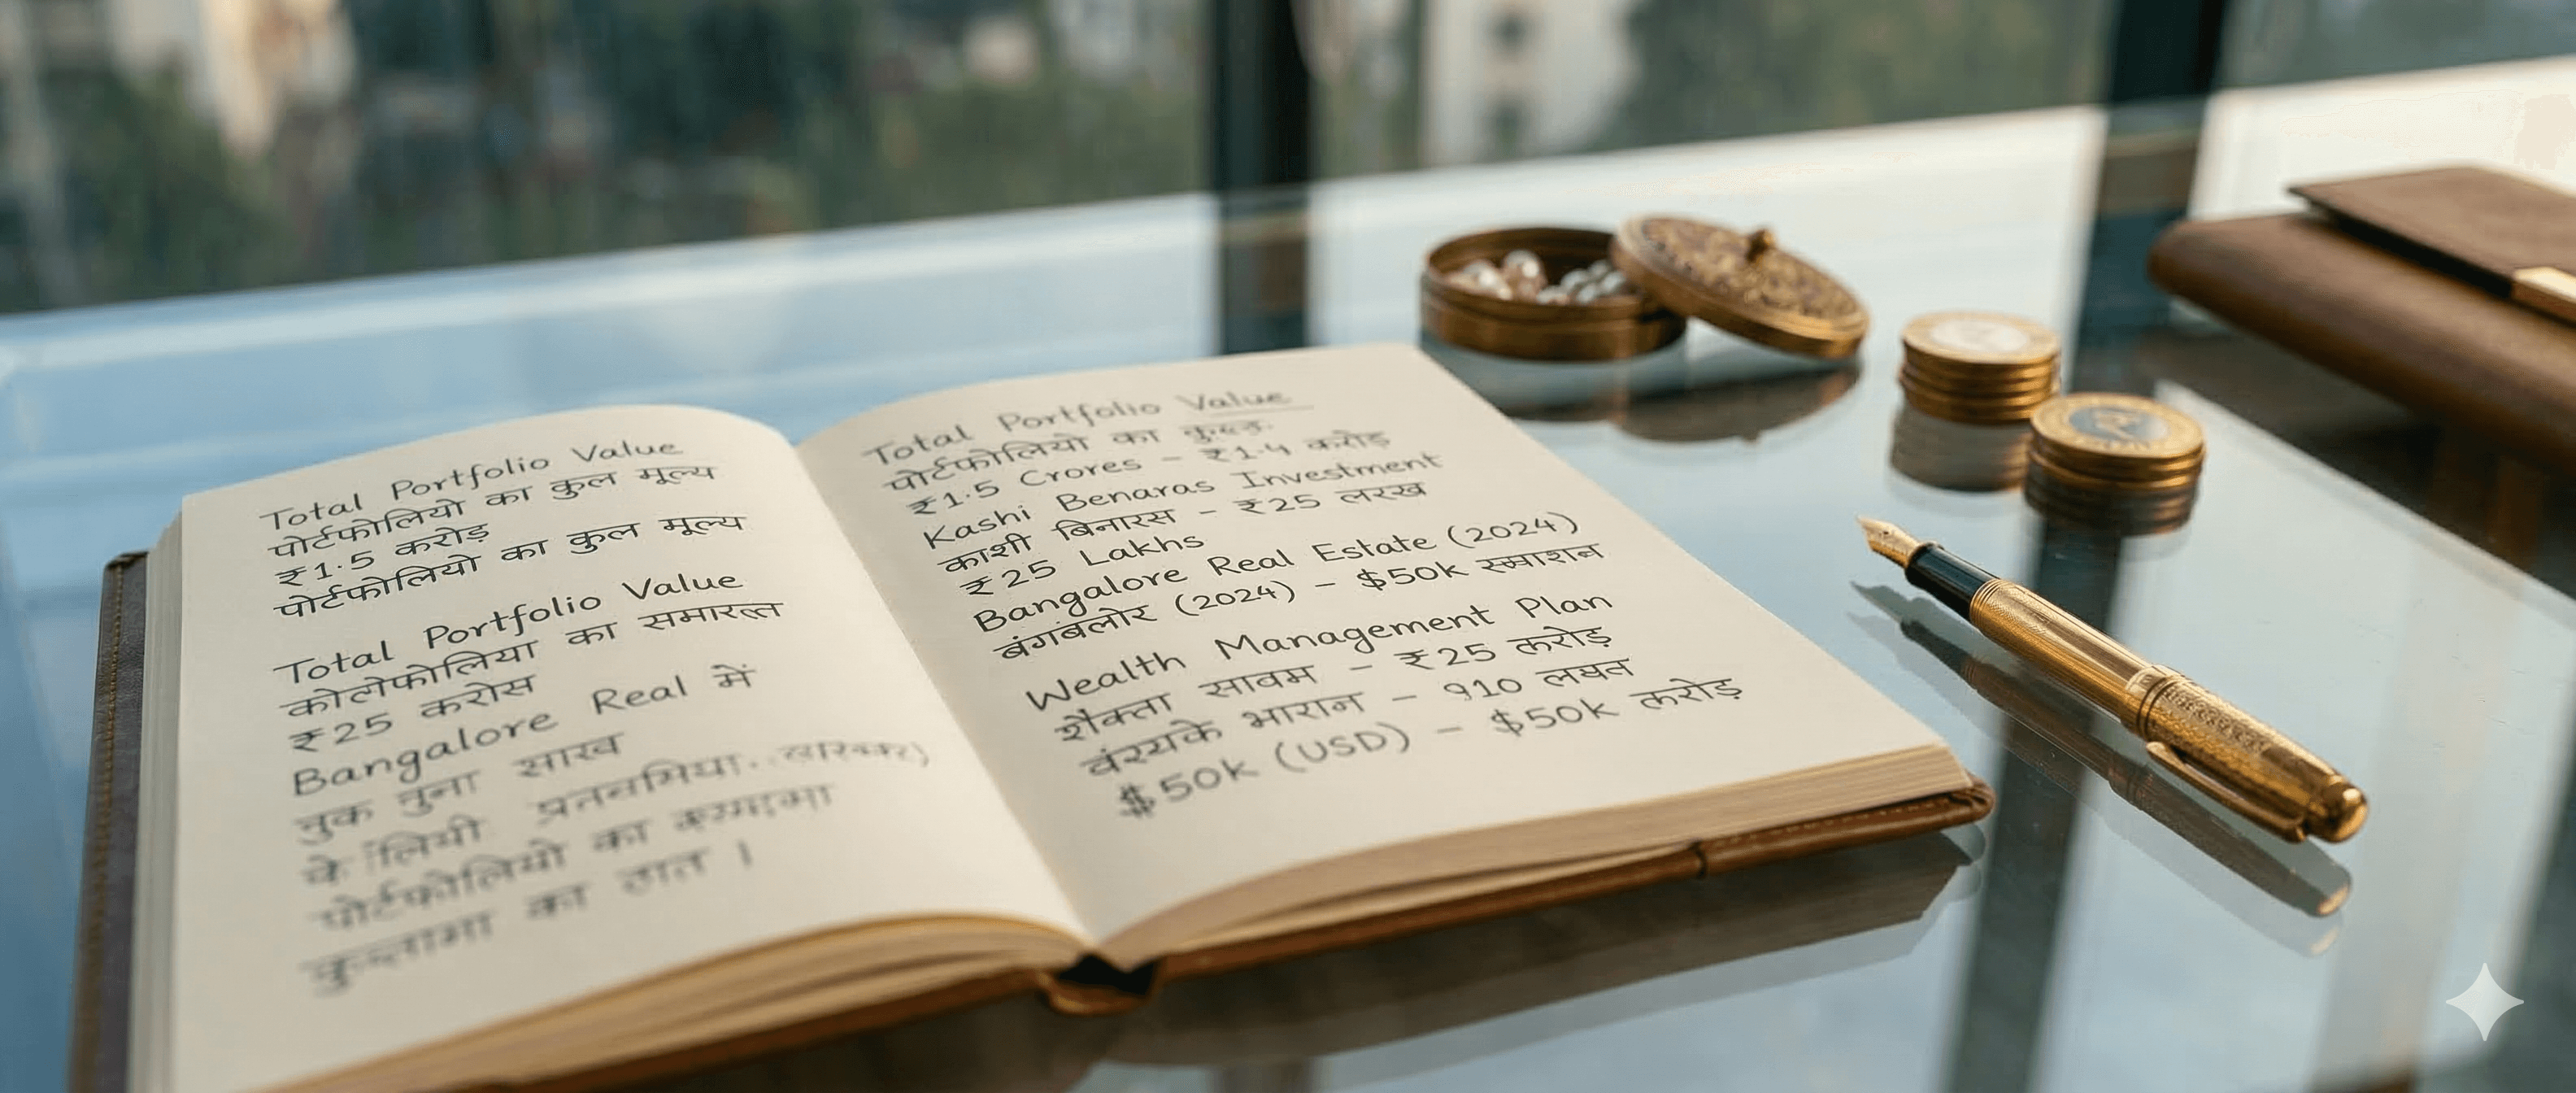 Total Portfolio Value
पोर्टफोलियो का कुल मूल्य
₹1.5 करोड़
पोर्टफोलियो का कुल मूल्य
Total Portfolio Value
का समारत्त
₹25 करोस
Bangalore Real में
नुक नुना साख
के लियी
पोर्टफोलियो का
का ठात ।
Total Portfolio Value
पोर्टफोलियो का
₹1.5 Crores – ₹1.4 करोड़
Kashi Benaras Investment
काशी बिनारस – ₹25 लरख
₹25 Lakhs
Bangalore Real Estate (2024)
बंगबलोर (2024) – $50k स्माशन
Wealth Management Plan
शैक्ता सावम – ₹25 करोड़
भारान – 910
$50k (USD) – $50k करोड़